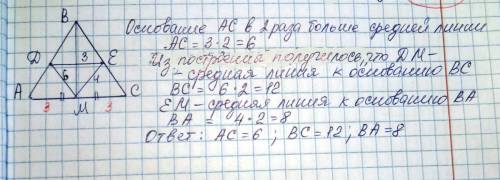 B
D
E
3
6
4
A
M
C
3
3
Основание AC в 2 раза больше средней линии
AC = 3·2 = 6
Из построения получилось, что DM –
– средняя линия к основанию BC
BC = 6·2 = 12
EM – средняя линия к основанию BA
BA = 4·2 = 8
Ответ: AC = 6 ; BC = 12 ; BA = 8